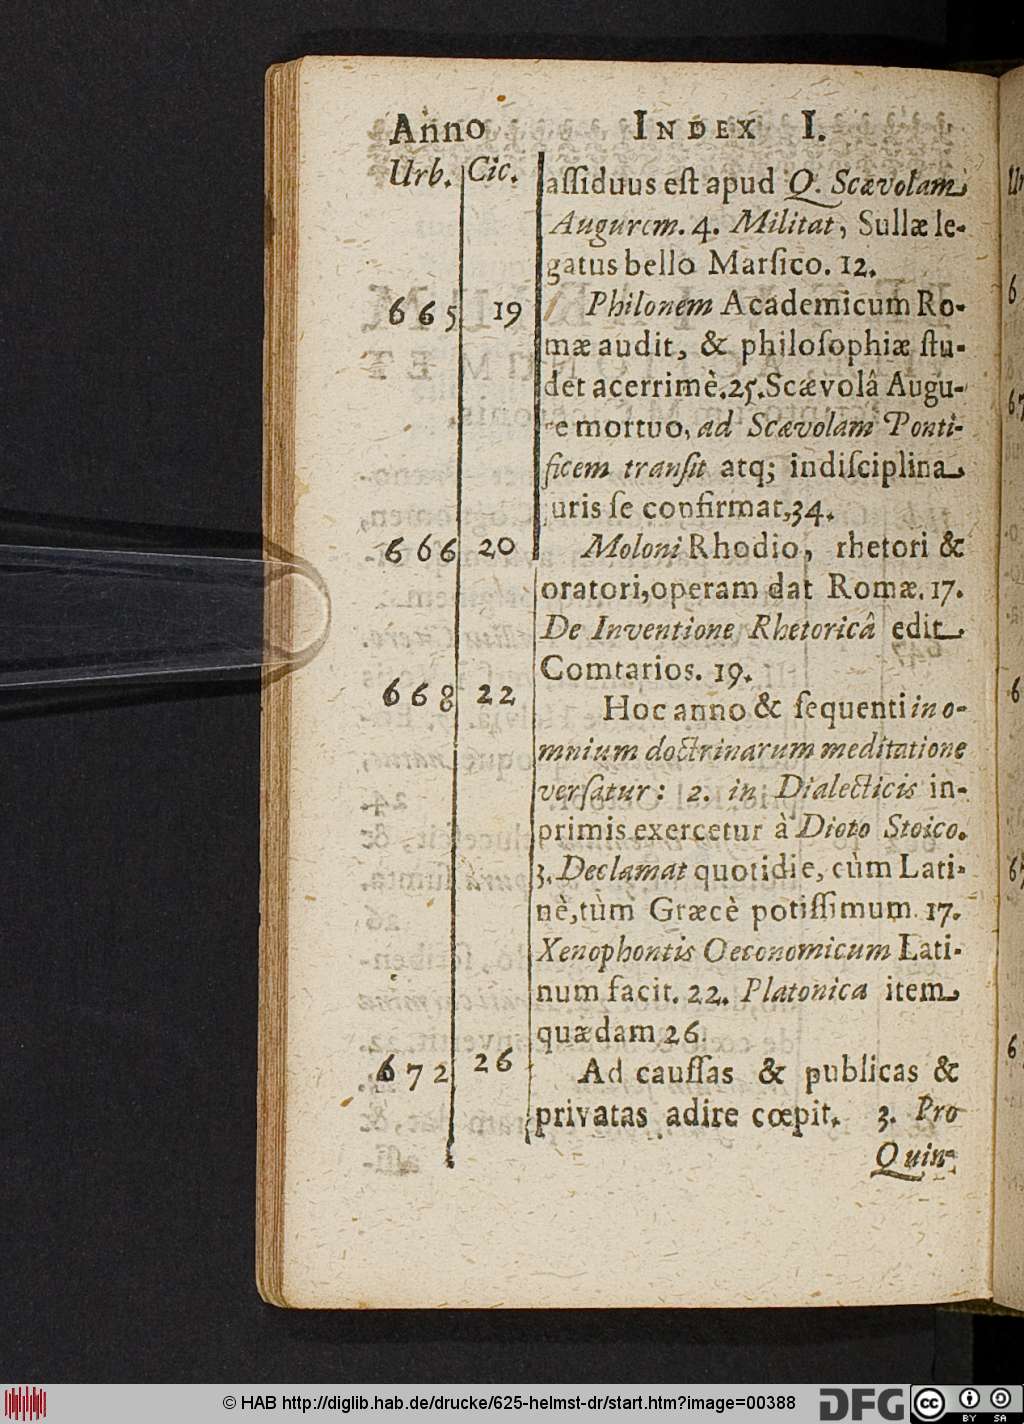 Anno INDEX I.
Urb. Cic. assiduus est apud Q. Scævolam
Augurem. 4. Militat, Sullæ le-
gatus bello Marsico. 12.
665 19 Philonem Academicum Ro-
mæ audit, & philosophiæ stu-
det acerrimè. 25. Scævolâ Augu-
e mortuo, ad Scævolam Ponti-
ficem transit atq; indisciplina
juris se confirmat, 34.
666 20 Moloni Rhodio, rhetori &
oratori, operam dat Romæ. 17.
De Inventione Rhetoricâ edit
Comtarios. 19.
668 22 Hoc anno & sequenti in o-
mnium doctrinarum meditatione
versatur: 2. in Dialecticis in-
primis exercetur à Dioto Stoico.
3. Declamat quotidie, cùm Lati-
nè, tùm Græcè potissimum. 17.
Xenophontis Oeconomicum Lati-
num facit. 22. Platonica item
quædam 26.
672 26 Ad caussas & publicas &
privatas adire cœpit. 3. Pro
Quin-
© HAB http://diglib.hab.de/drucke/625-helmst-dr/start.htm?image=00388 DFG cc BY SA